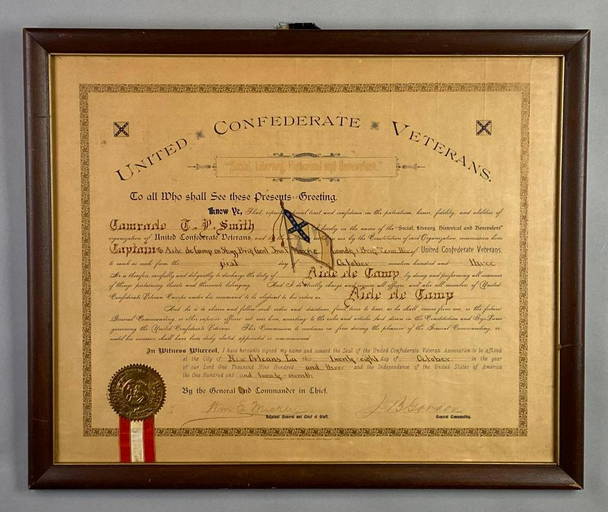 UNITED CONFEDERATE VETERANS.
"Social, Literary, Historical and Benevolent."
To all Who shall See these Presents--Greeting.
Know Ye, That, reposing special trust and confidence in the patriotism, honor, fidelity, and abilities of
Comrade T. P. Smith hereby, in the name of the "Social, Literary, Historical and Benevolent"
organization of United Confederate Veterans, and by the Constitution of said Organization, commission him
Captain & Aide de Camp on United Confederate Veterans
to rank as such from the first day of October nineteen hundred and three
He is therefore, carefully and diligently to discharge the duty of Aide de Camp by doing and performing all manner
of things pertaining thereto and thereunto belonging. And I do strictly charge and require all officers, and also all members of United
Confederate Veteran Camps under his command to be obedient to his orders as Aide de Camp
And he is to observe and follow such orders and directions, from time to time, as he shall receive from me, or the future
General Commanding, or other superior officers set over him, according to the rules and articles laid down in the Constitution and Bye-Laws
governing the United Confederate Veterans. This Commission to continue in force during the pleasure of the General Commanding, or
until his successor shall have been duly elected, appointed or commissioned.
In Witness Whereof, I have hereunto signed my name and caused the Seal of the United Confederate Veterans Association to be affixed
at the City of New Orleans La this Twenty eighth day of October in the year
of our Lord One Thousand Nine Hundred and three and the Independence of the United States of America
the One Hundred and twenty
By the General Commander in Chief.
Adjutant General and Chief of Staff.
J B Gordon
General Commanding.